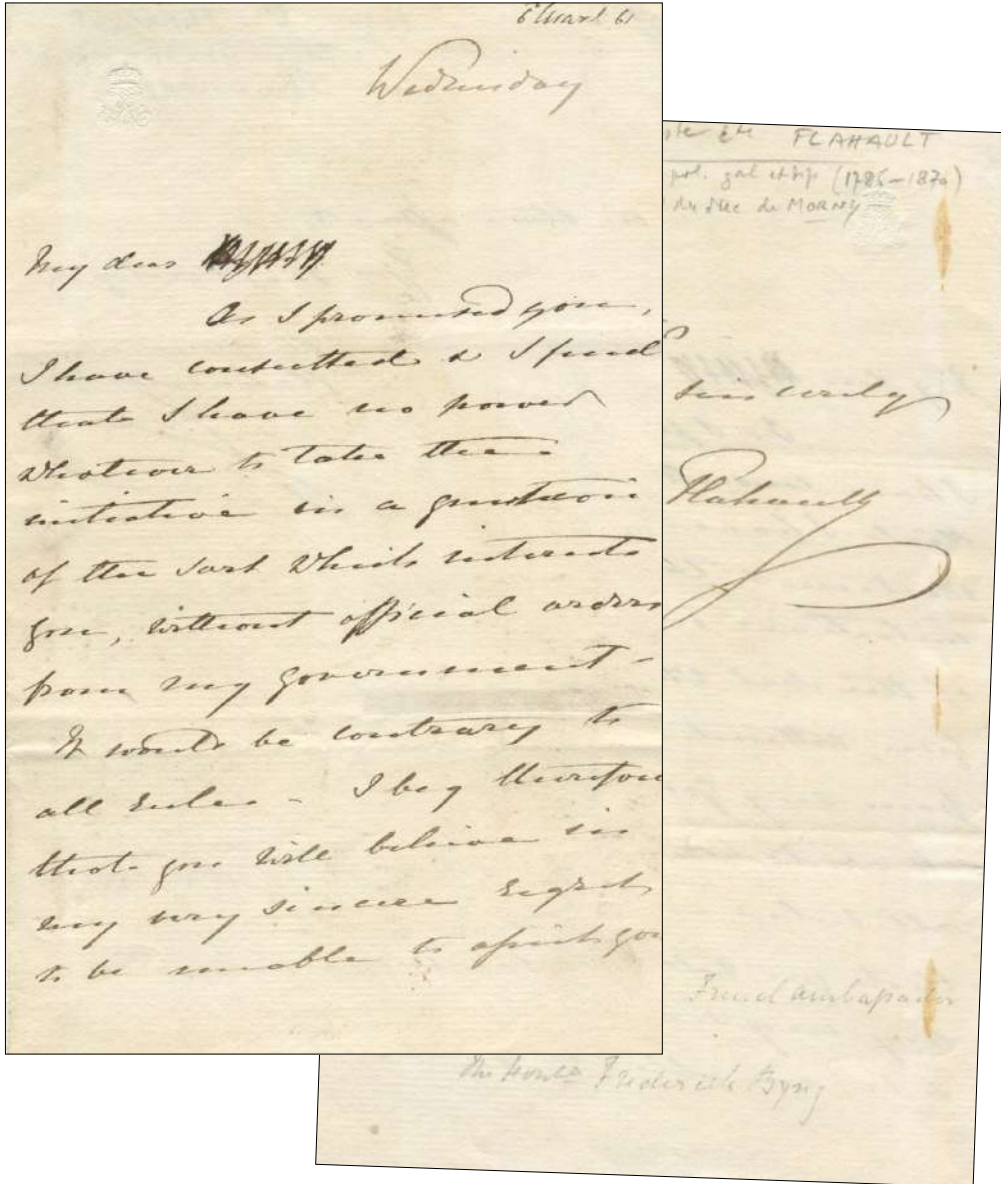 6 61
Wednesday
My dear
As I promised you,
I have consulted & I find
that I have no power
whatever to take the
initiative in a question
of the sort which interests
you, without official orders
from my government -
It would be contrary to
all rules - I beg therefore
that you will believe in
my very sincere regret
to be unable to assist you
FLAHAULT
(1785-1870)
du duc de MORNY
sincerely
Flahault
French ambassador
The Honble Frederick Byng